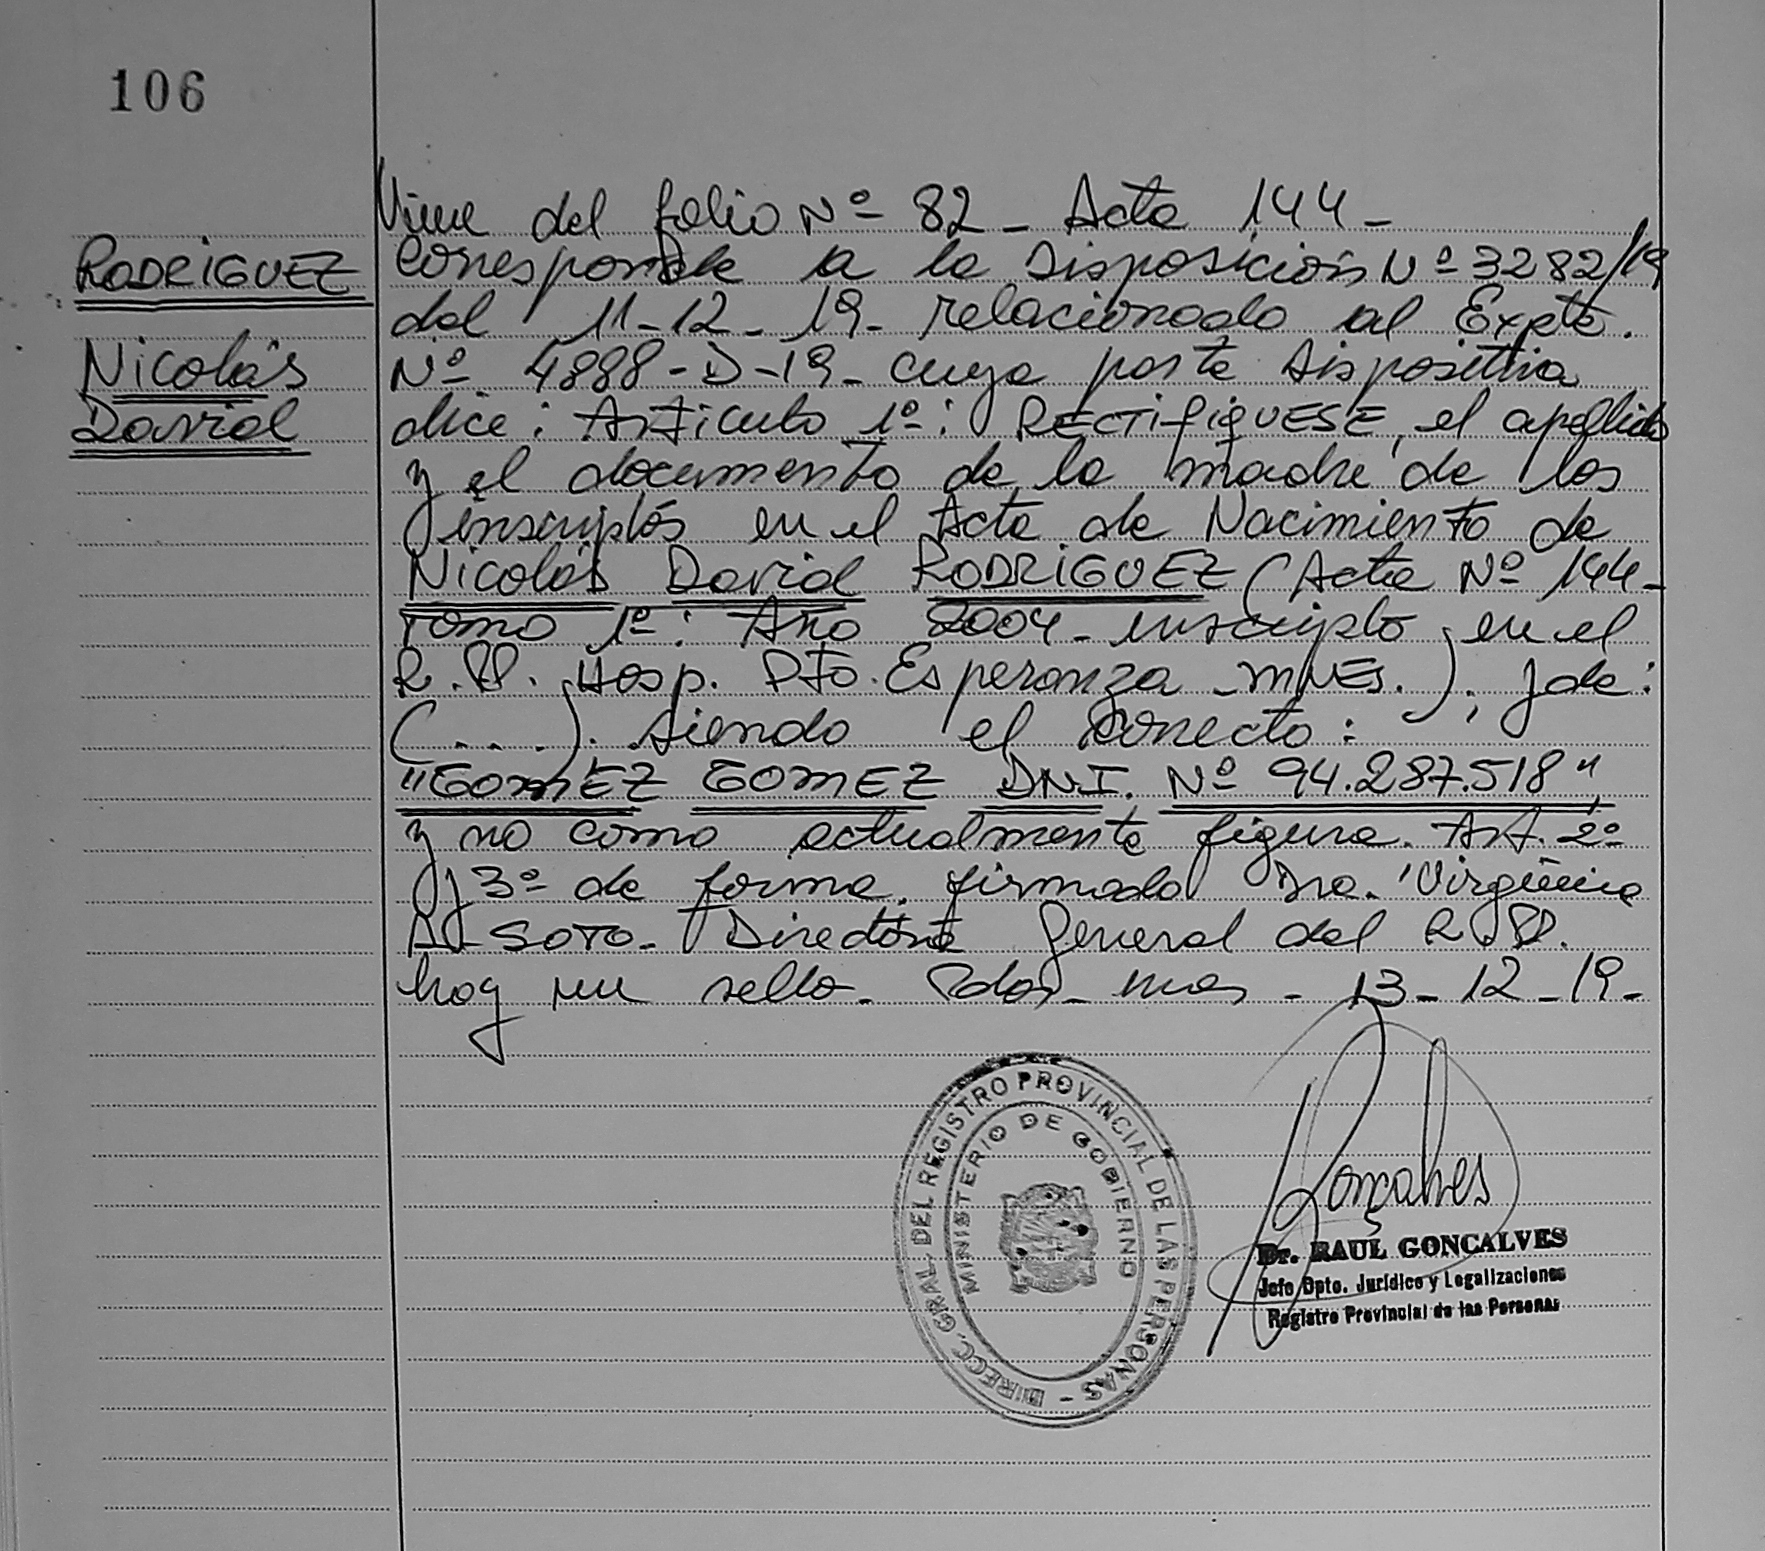 106
Viene del folio Nº 82 - Acta 144 -
RODRIGUEZ
Corresponde a la Disposición Nº 3282/19
del 11-12-19- relacionado al Expte.
Nicolás
Nº 4888-D-19- cuya parte dispositiva
David
dice: Artículo 1º: RECTIFIQUESE, el apellido
y el documento de la madre de los
inscriptos en el Acta de Nacimiento de
Nicolás David RODRIGUEZ (Acta Nº 144-
Tomo 1º: Año 2004- inscripto en el
R.P. Hosp. Pto. Esperanza - MNES.), de:
(...). siendo el correcto:
"GOMEZ GOMEZ DNI. Nº 94.287.518",
y no como actualmente figura. Art. 2º
y 3º de forma. firmado Dra. Virginia
A. SOTO- Directora General del R.P.
hay un sello. Pdas- Mnes - 13-12-19-
DIRECC. GRAL. DEL REGISTRO PROVINCIAL DE LAS PERSONAS -
MINISTERIO DE GOBIERNO
Gonçalves
Dr. RAUL GONÇALVES
Jefe Dpto. Jurídico y Legalizaciones
Registro Provincial de las Personas